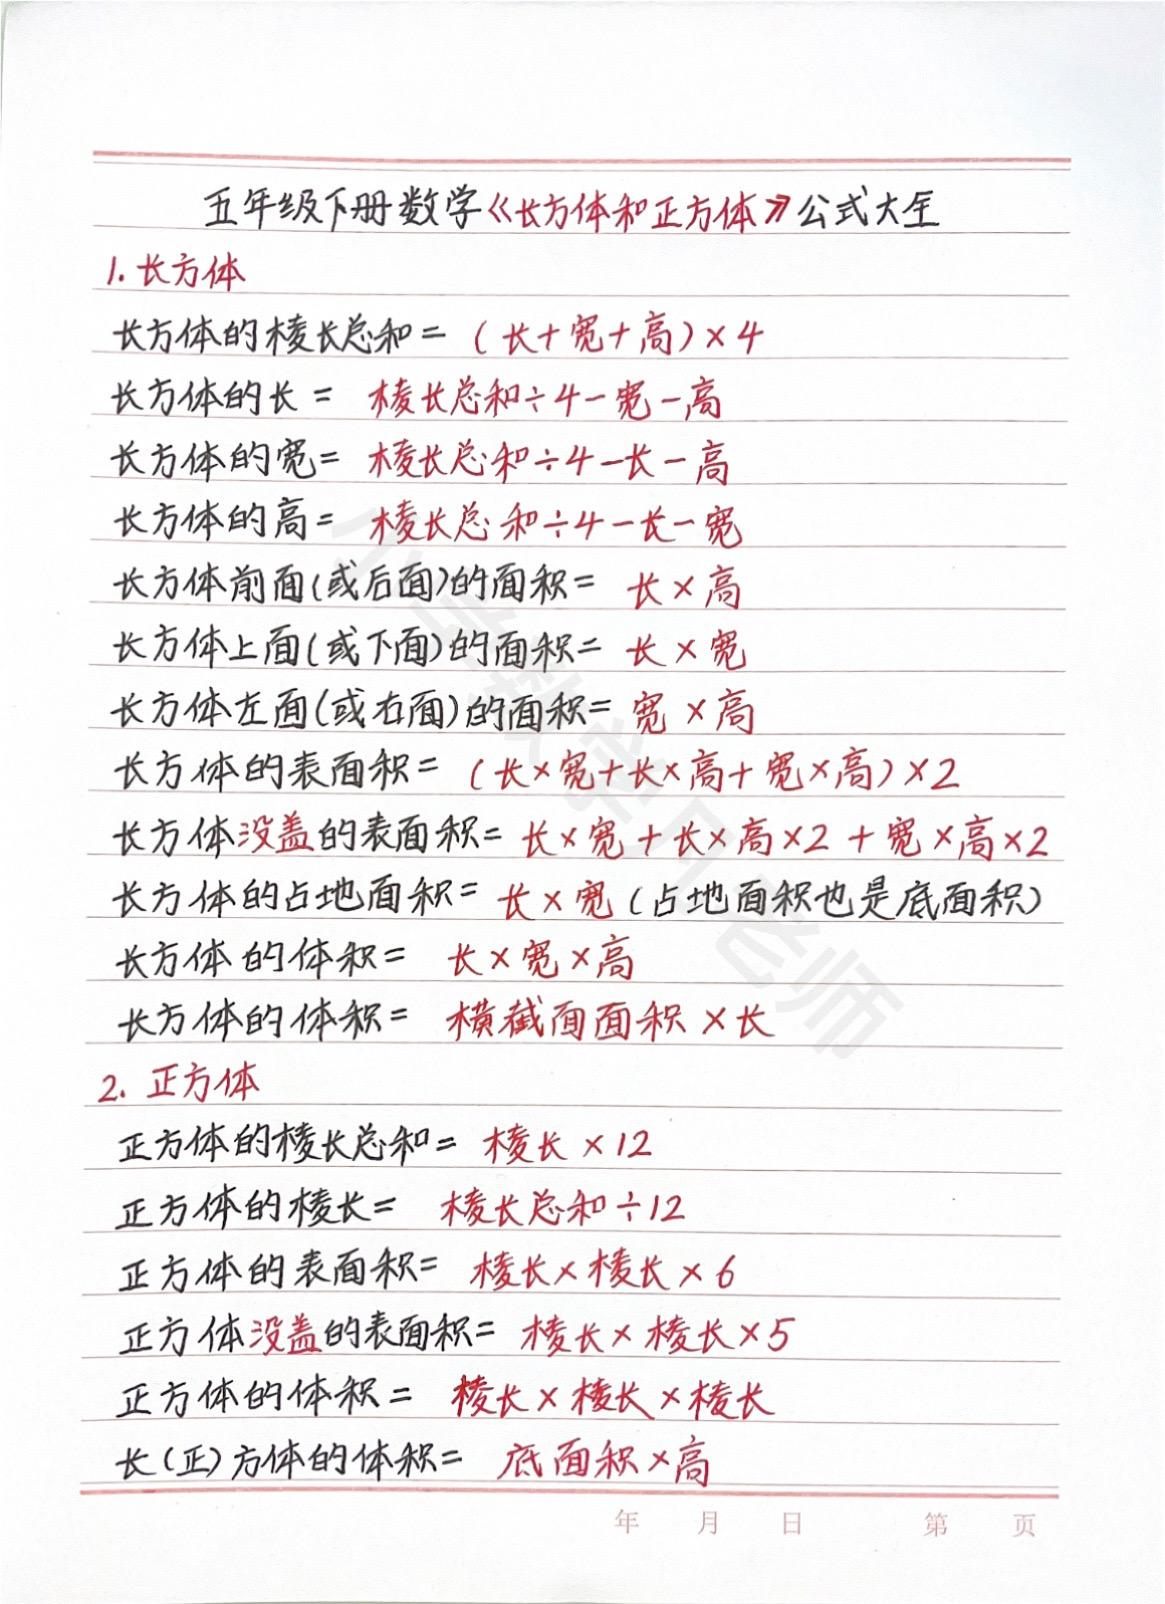 五年级下册数学《长方体和正方体》公式大全
1. 长方体
长方体的棱长总和= (长+宽+高)×4
长方体的长= 棱长总和÷4-宽-高
长方体的宽= 棱长总和÷4-长-高
长方体的高= 棱长总和÷4-长-宽
长方体前面(或后面)的面积= 长×高
长方体上面(或下面)的面积= 长×宽
长方体左面(或右面)的面积= 宽×高
长方体的表面积= (长×宽+长×高+宽×高)×2
长方体没盖的表面积= 长×宽+长×高×2+宽×高×2
长方体的占地面积= 长×宽(占地面积也是底面积)
长方体的体积= 长×宽×高
长方体的体积= 横截面面积×长
2. 正方体
正方体的棱长总和= 棱长×12
正方体的棱长= 棱长总和÷12
正方体的表面积= 棱长×棱长×6
正方体没盖的表面积= 棱长×棱长×5
正方体的体积= 棱长×棱长×棱长
长(正)方体的体积= 底面积×高
年 月 日 第 页
小学数学凡老师